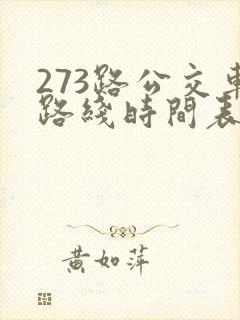 273路公交車
路綫時間表
黄如萍